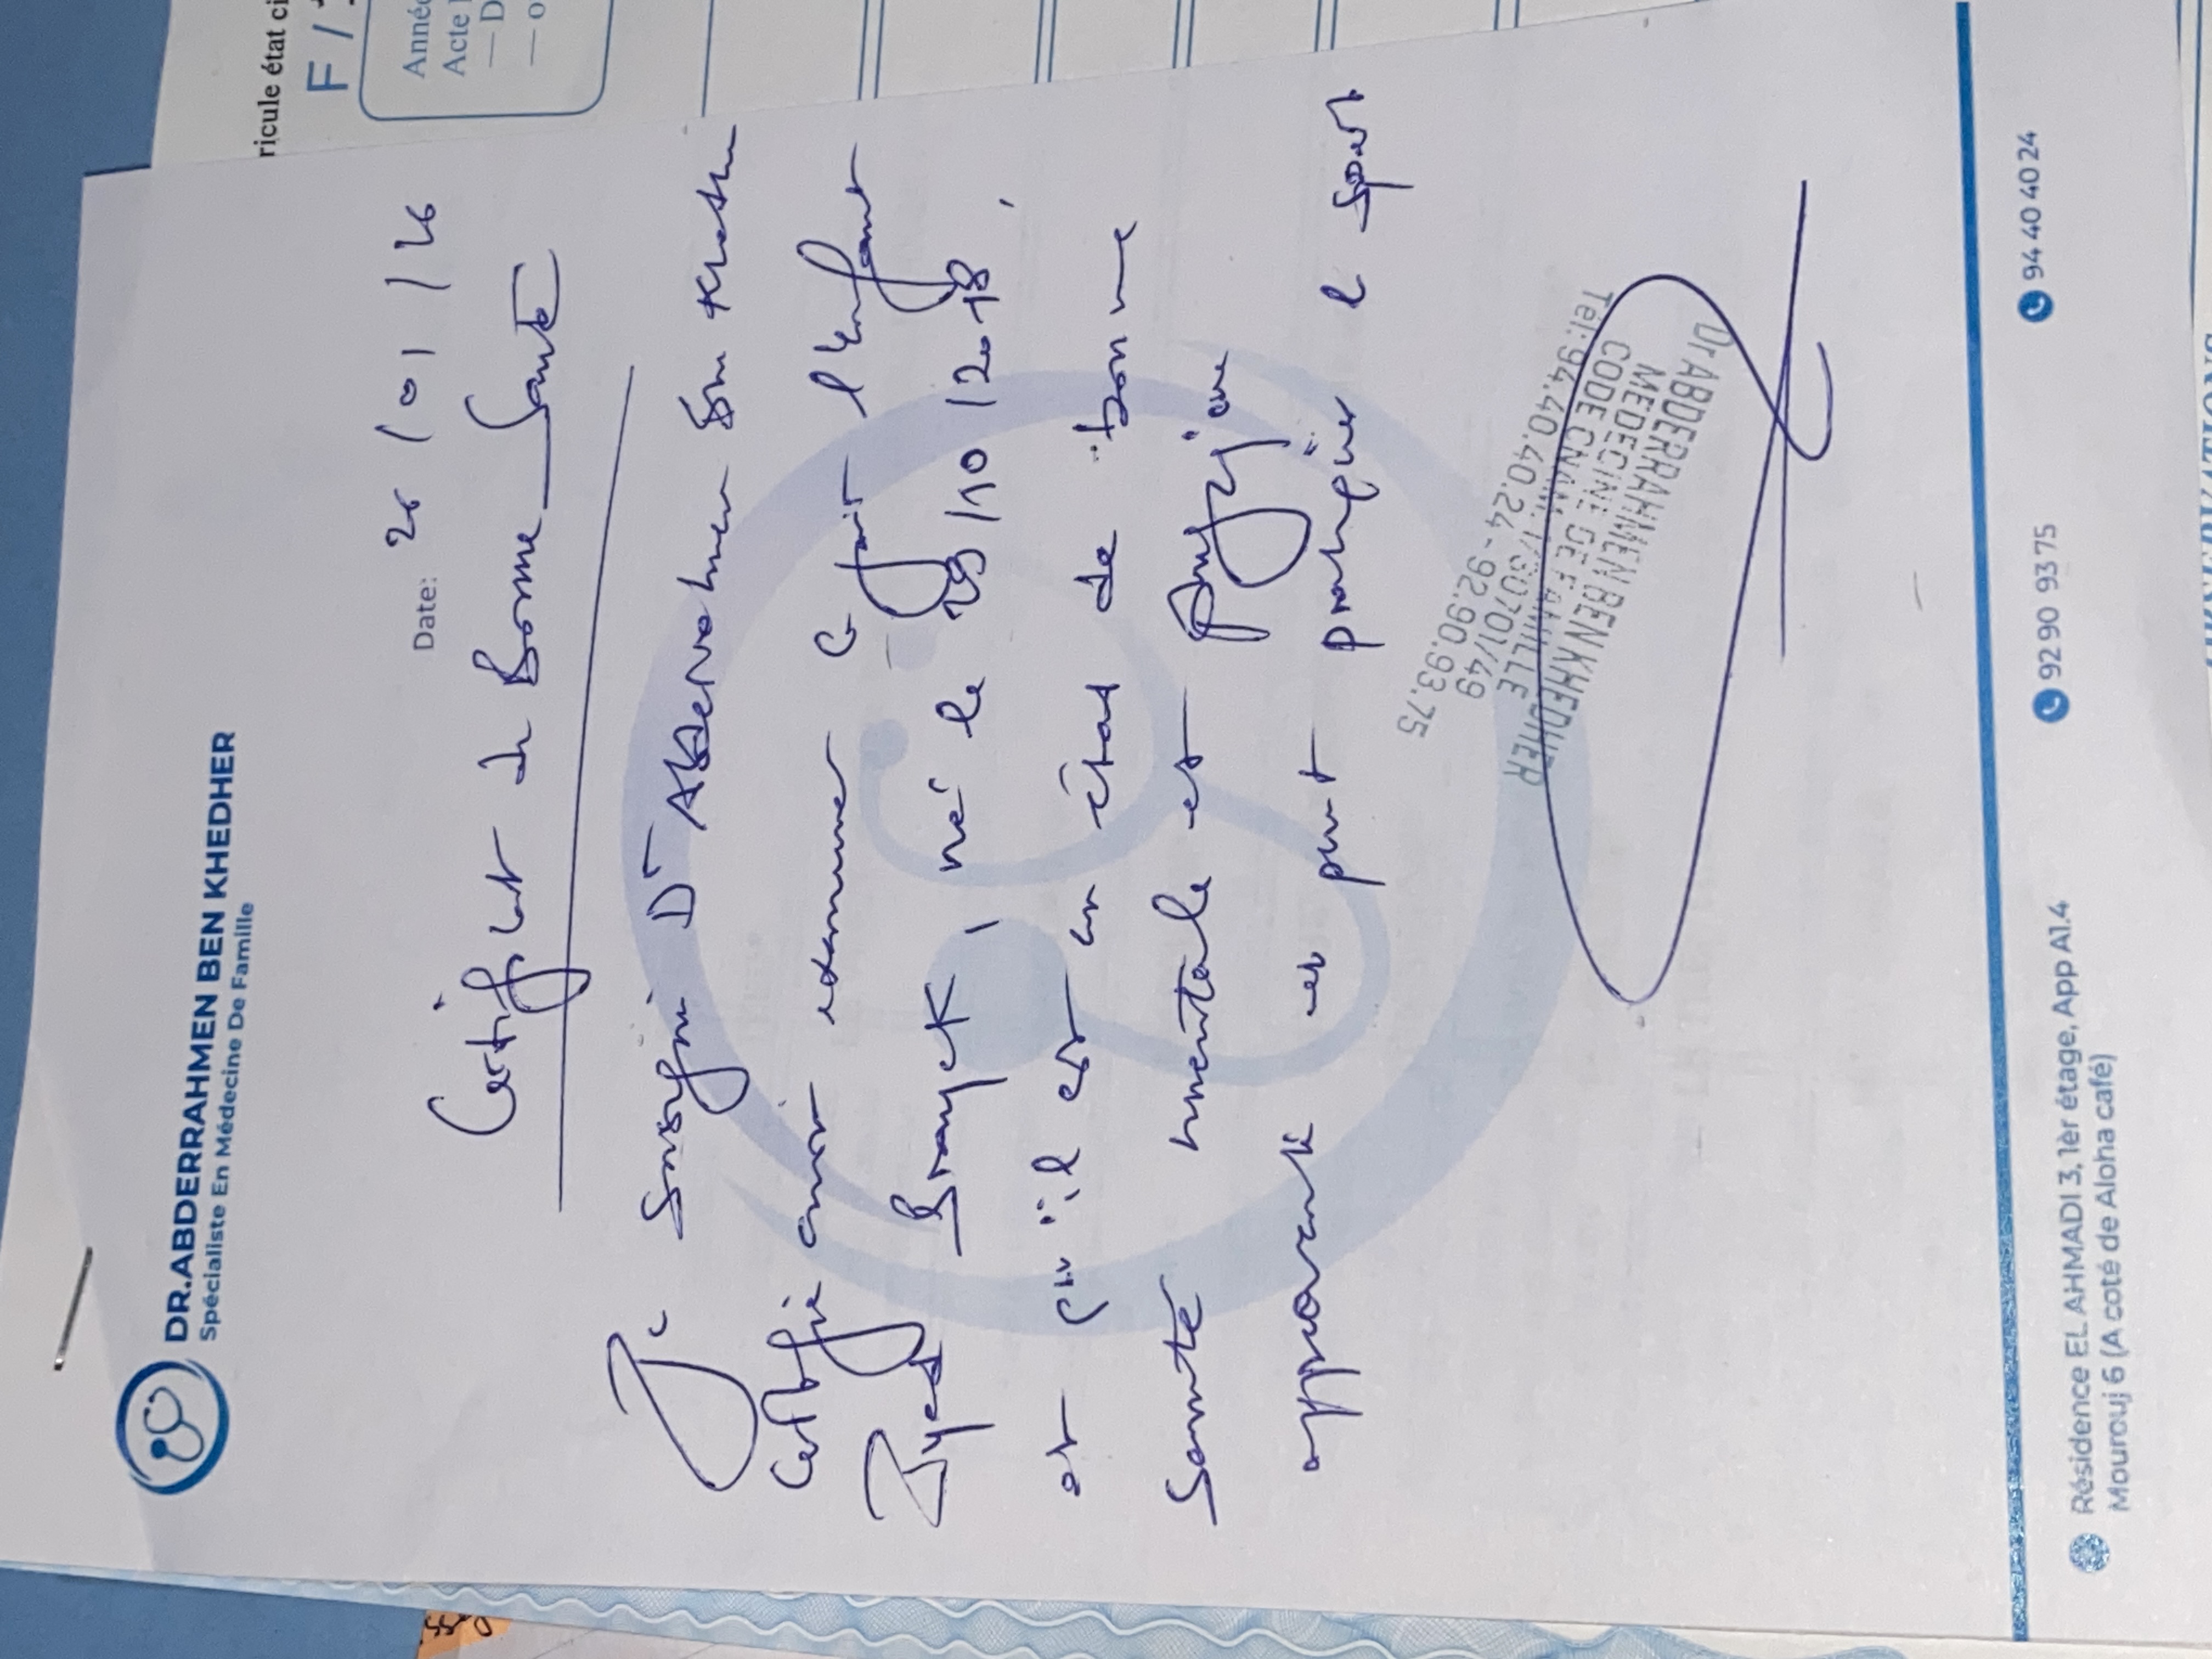 DR.ABDERRAHMEN BEN KHEDHER
Spécialiste En Médecine De Famille
Date: 26/01/26
Certificat de Bonne Santé
Je soussigné Dr Abderrahmen Ben Khedher
Certifie avoir examiné ce jour l'enfant
Zyed Brayek, né le 29/10/2018,
et qu'il est en état de bonne
Santé mentale et physique
apparente et peut pratiquer le sport
Dr ABDERRAHMEN BEN KHEDHER
MEDECINE DE FAMILLE
CODE CNAM: 1/30701/49
Tél: 94.40.40.24 - 92.90.93.75
Résidence EL AHMADI 3, 1èr étage, App A1.4
Mourouj 6 (A coté de Aloha café)
92 90 93 75
94 40 40 24
ricule état ci
F /
Année
Acte
— D
— o